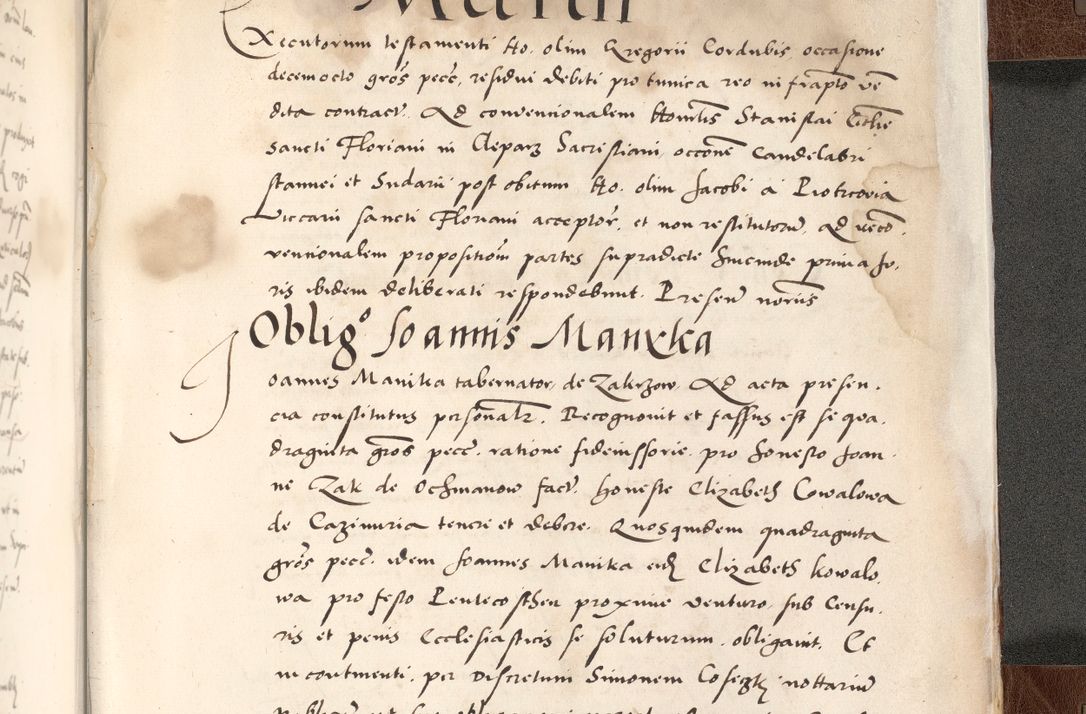 Xecutorum testamenti Ho. olim Gregorii Cordubis, occasione
decemocto gros pecc, residui debiti pro tunica reo in frapto ve
dita contract. Ad convencionalem Honilis Stanislai
sancti Floriani in Cleparz Sacristiani, occone Candelabri
stannei et Sudarii post obitum Ho. olim Jacobi a Piotrcovia
Viccarii sancti Floriani acceptor, et non restitutoru, ad reco.
vencionalem proposition partes supradicte Inicinde prima Ju,
ris ibidem deliberati respondebunt. Presen noriis
Oblig⁰ Joannis Manyka
Joannes Manika tabernator, de Zakrzow, Ad acta presen.
cia constitutus personalr. Recognovit et fassus est se qua.
draginta gros pecc, ratione fideiussorie, pro honesto Joan
ne Zak de Ochmanow fact, honeste Elizabeth Cowalowa
de Cazimiria tencre et debere. Quosquidem quadraginta
gros pecc. idem Joannes Manika eid Elizabeth kowalo
wa pro festo Pentecosthen proxime venturo, sub Censu.
ris et penis Ecclesiasticis se soluturum, obligavit. Et
in continenti, per Discretum Simonem Cosegkj nottariu